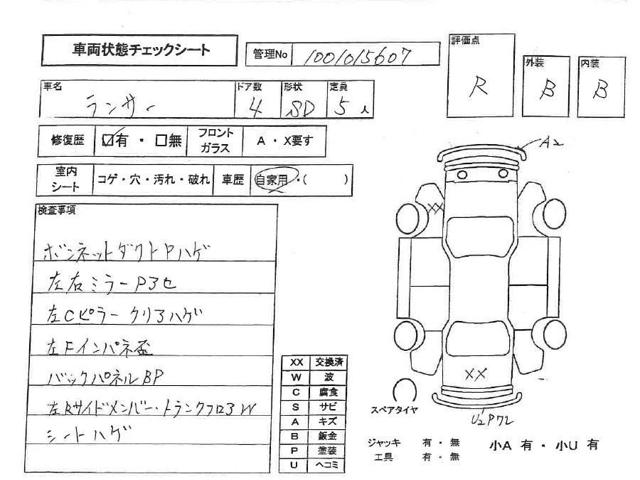 車両状態チェックシート
管理No 1001015607
評価点 R
外装 B
内装 B
車名 ランサー
ドア数 4
形状 SD
定員 5人
修復歴 ☑有・□無
フロントガラス A・X要す
室内シート コゲ・穴・汚れ・破れ
車歴 自家用・( )
検査事項
ボンネットダクトPハゲ
左右ミラーP3セ
左Cピラー クリアハゲ
左Fインパネ歪
バックパネルBP
左Rサイドメンバー・トランクフロアW
シートハゲ
XX 交換済
W 波
C 腐食
S サビ
A キズ
B 鈑金
P 塗装
U ヘコミ
A2
XX
XX
U2P72
スペアタイヤ
ジャッキ 有・無
工具 有・無
小A 有・小U 有